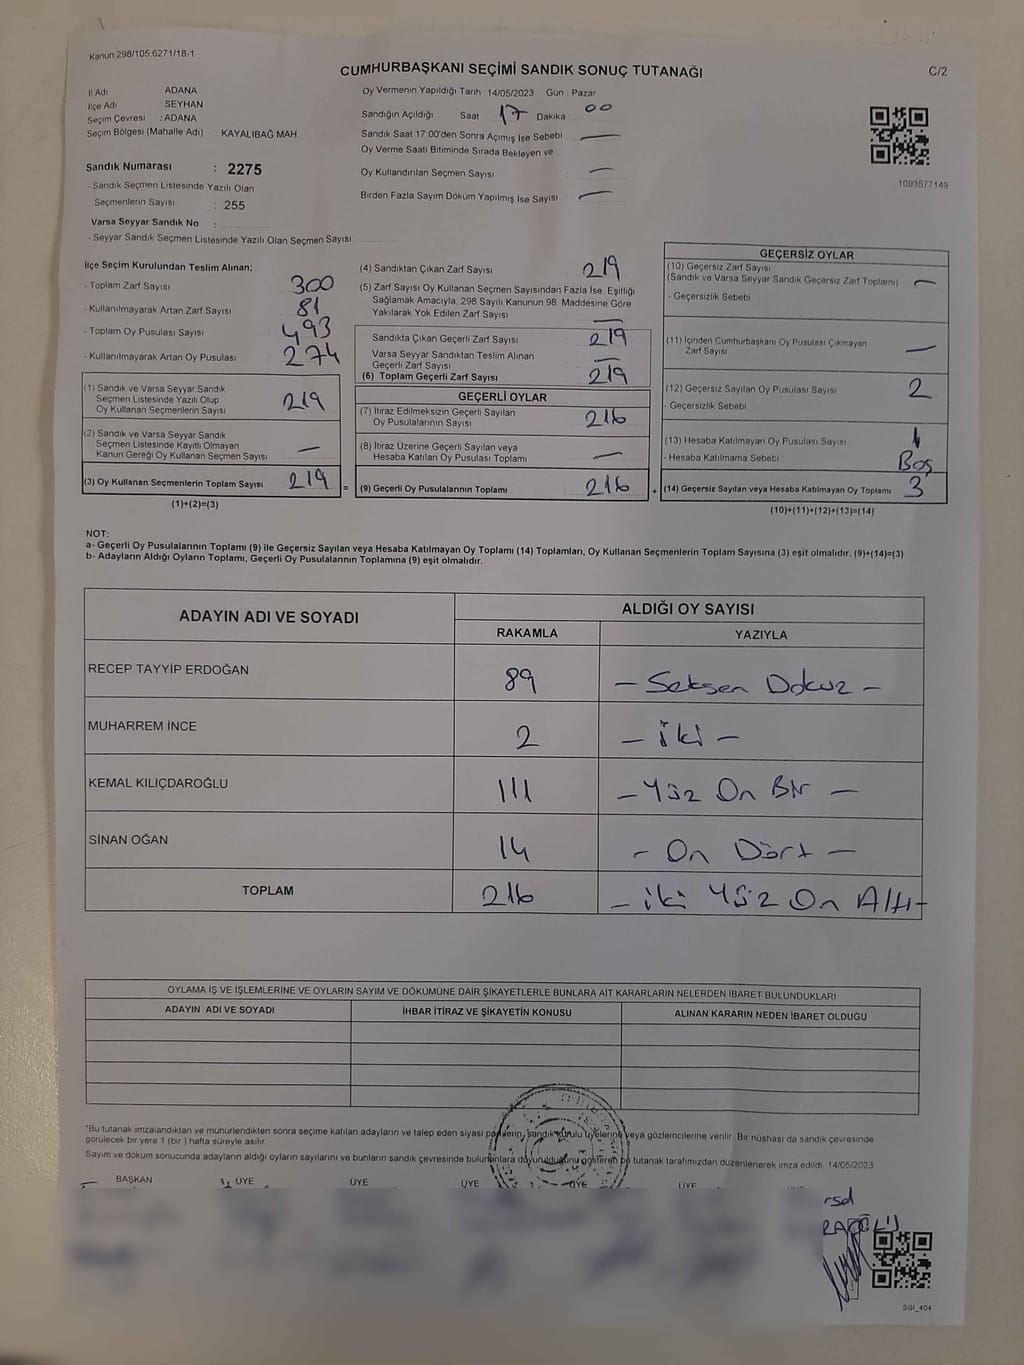 Kanun:298/105:6271/18-1
CUMHURBAŞKANI SEÇİMİ SANDIK SONUÇ TUTANAĞI
C/2
İl Adı ADANA
İlçe Adı : SEYHAN
Seçim Çevresi : ADANA
Seçim Bölgesi (Mahalle Adı) : KAYALIBAĞ MAH
Sandık Numarası : 2275
- Sandık Seçmen Listesinde Yazılı Olan
Seçmenlerin Sayısı : 255
Varsa Seyyar Sandık No :
- Seyyar Sandık Seçmen Listesinde Yazılı Olan Seçmen Sayısı:
Oy Vermenin Yapıldığı Tarih : 14/05/2023 Gün : Pazar
Sandığın Açıldığı Saat 17 Dakika 00
Sandık Saat 17:00'den Sonra Açılmış İse Sebebi —
Oy Verme Saati Bitiminde Sırada Bekleyen ve
Oy Kullandırılan Seçmen Sayısı —
Birden Fazla Sayım Döküm Yapılmış İse Sayısı —
1093577149
İlçe Seçim Kurulundan Teslim Alınan;
- Toplam Zarf Sayısı 300
- Kullanılmayarak Artan Zarf Sayısı 81
- Toplam Oy Pusulası Sayısı 493
- Kullanılmayarak Artan Oy Pusulası 274
(1) Sandık ve Varsa Seyyar Sandık
Seçmen Listesinde Yazılı Olup
Oy Kullanan Seçmenlerin Sayısı 219
(2) Sandık ve Varsa Seyyar Sandık
Seçmen Listesinde Kayıtlı Olmayan
Kanun Gereği Oy Kullanan Seçmen Sayısı —
(3) Oy Kullanan Seçmenlerin Toplam Sayısı 219 =
(1)+(2)=(3)
(4) Sandıktan Çıkan Zarf Sayısı 219
(5) Zarf Sayısı Oy Kullanan Seçmen Sayısından Fazla İse, Eşitliği
Sağlamak Amacıyla, 298 Sayılı Kanunun 98. Maddesine Göre
Yakılarak Yok Edilen Zarf Sayısı —
Sandıkta Çıkan Geçerli Zarf Sayısı 219
Varsa Seyyar Sandıktan Teslim Alınan
Geçerli Zarf Sayısı —
(6) Toplam Geçerli Zarf Sayısı 219
GEÇERLİ OYLAR
(7) İtiraz Edilmeksizin Geçerli Sayılan
Oy Pusulalarının Sayısı 216
(8) İtiraz Üzerine Geçerli Sayılan veya
Hesaba Katılan Oy Pusulası Toplamı —
(9) Geçerli Oy Pusulalarının Toplamı 216 +
GEÇERSİZ OYLAR
(10) Geçersiz Zarf Sayısı
(Sandık ve Varsa Seyyar Sandık Geçersiz Zarf Toplamı) —
- Geçersizlik Sebebi
(11) İçinden Cumhurbaşkanı Oy Pusulası Çıkmayan
Zarf Sayısı —
(12) Geçersiz Sayılan Oy Pusulası Sayısı 2
- Geçersizlik Sebebi
(13) Hesaba Katılmayan Oy Pusulası Sayısı 1
- Hesaba Katılmama Sebebi Boş
(14) Geçersiz Sayılan veya Hesaba Katılmayan Oy Toplamı 3
(10)+(11)+(12)+(13)=(14)
NOT:
a- Geçerli Oy Pusulalarının Toplamı (9) ile Geçersiz Sayılan veya Hesaba Katılmayan Oy Toplamı (14) Toplamları, Oy Kullanan Seçmenlerin Toplam Sayısına (3) eşit olmalıdır. (9)+(14)=(3)
b- Adayların Aldığı Oyların Toplamı, Geçerli Oy Pusulalarının Toplamına (9) eşit olmalıdır.
ADAYIN ADI VE SOYADI
ALDIĞI OY SAYISI
RAKAMLA YAZIYLA
RECEP TAYYİP ERDOĞAN 89 – Seksen Dokuz –
MUHARREM İNCE 2 – iki –
KEMAL KILIÇDAROĞLU 111 – Yüz On Bir –
SİNAN OĞAN 14 – On Dört –
TOPLAM 216 – iki Yüz On Altı
OYLAMA İŞ VE İŞLEMLERİNE VE OYLARIN SAYIM VE DÖKÜMÜNE DAİR ŞİKAYETLERLE BUNLARA AİT KARARLARIN NELERDEN İBARET BULUNDUKLARI
ADAYIN ADI VE SOYADI İHBAR İTİRAZ VE ŞİKAYETİN KONUSU ALINAN KARARIN NEDEN İBARET OLDUĞU
*Bu tutanak imzalandıktan ve mühürlendikten sonra seçime katılan adayların ve talep eden siyasi partilerin, sandık kurulu üyelerine veya gözlemcilerine verilir. Bir nüshası da sandık çevresinde
görülecek bir yere 1 (bir) hafta süreyle asılır.
Sayım ve döküm sonucunda adayların aldığı oyların sayılarını ve bunların sandık çevresinde bulunanlara duyurulduğunu gösteren bu tutanak tarafımızdan düzenlenerek imza edildi. 14/05/2023
BAŞKAN ÜYE ÜYE ÜYE ÜYE ÜYE
SSI_404